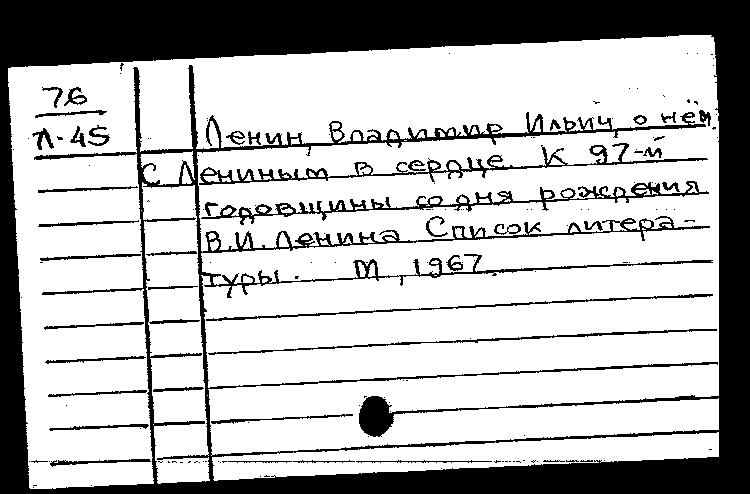 76
Л-45
Ленин, Владимир Ильич, о нём.
С Лениным в сердце. К 97-й
годовщины со дня рождения
В.И. Ленина Список литера-
туры. М, 1967.